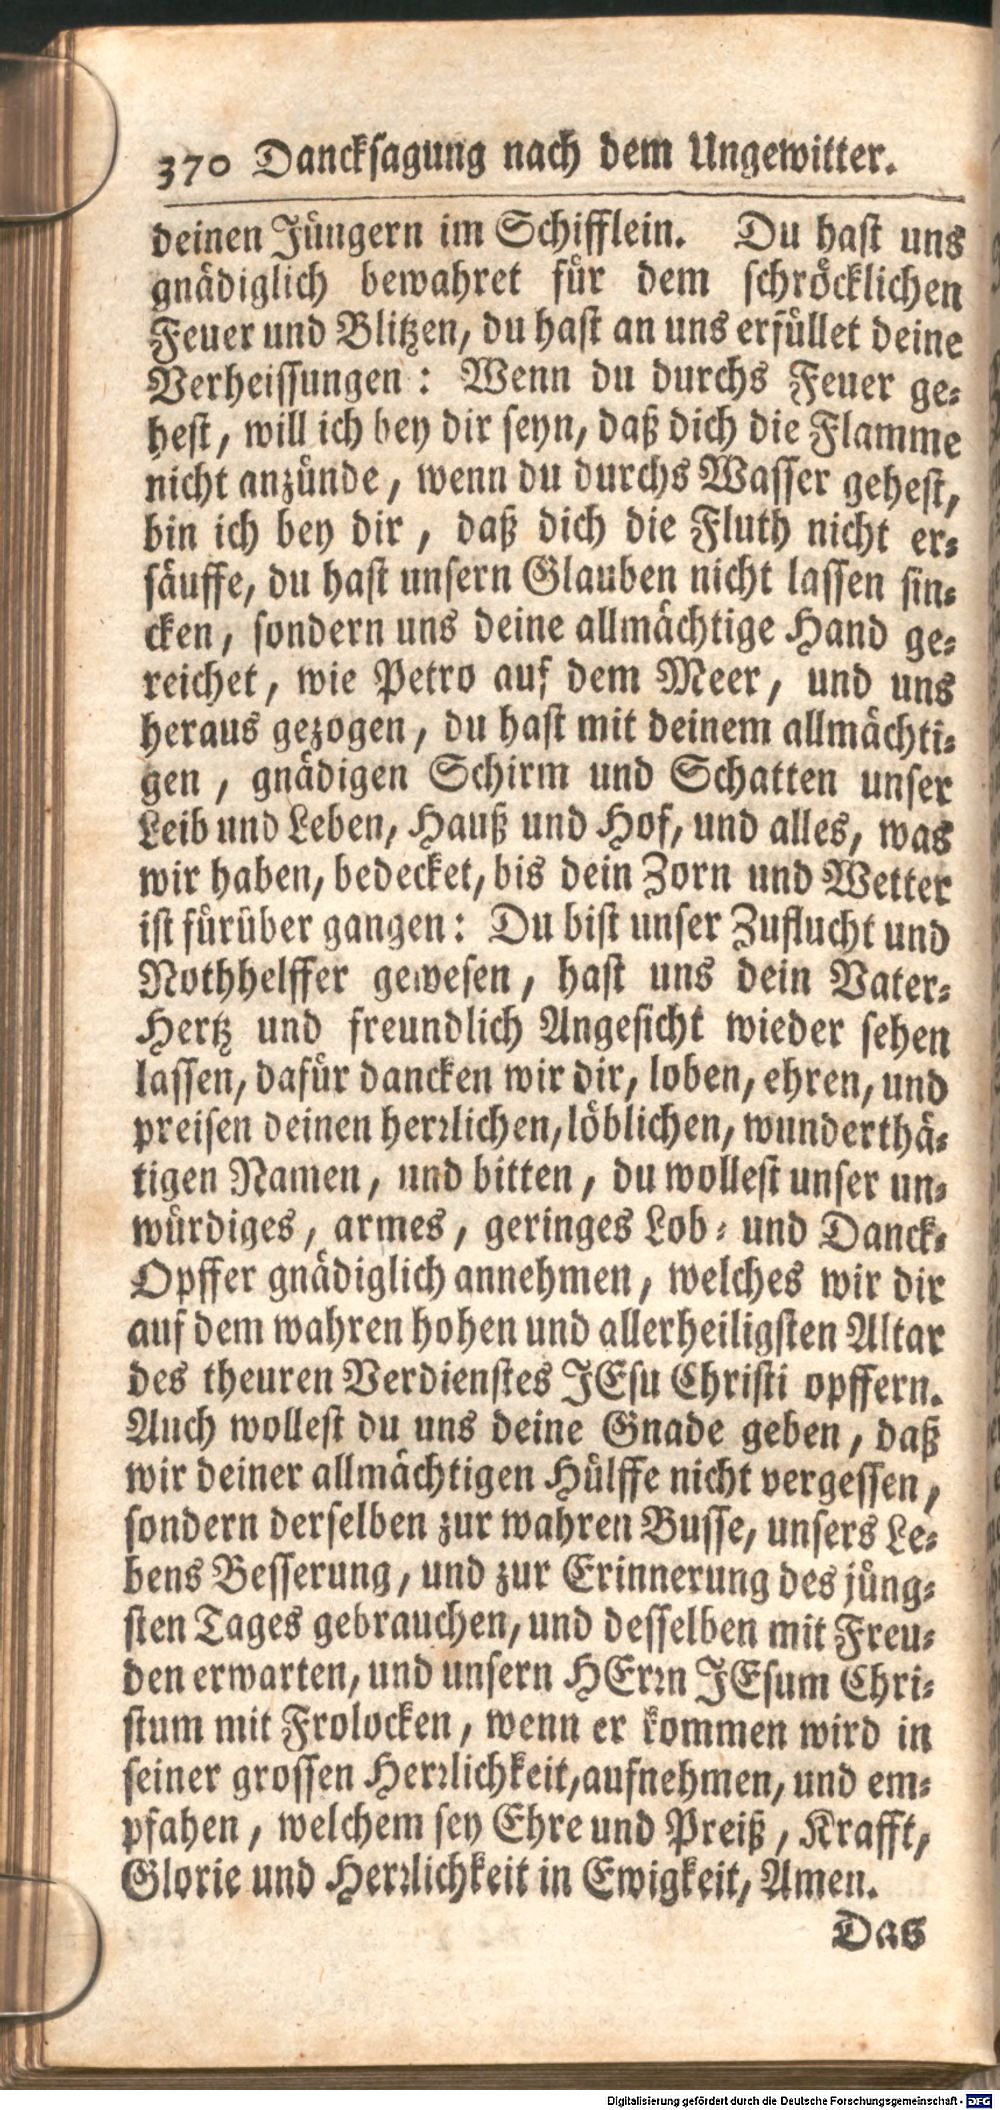 370 Dancksagung nach dem Ungewitter.
deinen Jüngern im Schifflein. Du hast uns
gnädiglich bewahret für dem schröcklichen
Feuer und Blitzen, du hast an uns erfüllet deine
Verheissungen: Wenn du durchs Feuer ge-
hest, will ich bey dir seyn, daß dich die Flamme
nicht anzünde, wenn du durchs Wasser gehest,
bin ich bey dir, daß dich die Fluth nicht er-
säuffe, du hast unsern Glauben nicht lassen sin-
cken, sondern uns deine allmächtige Hand ge-
reichet, wie Petro auf dem Meer, und uns
heraus gezogen, du hast mit deinem allmächti-
gen, gnädigen Schirm und Schatten unser
Leib und Leben, Hauß und Hof, und alles, was
wir haben, bedecket, bis dein Zorn und Wetter
ist fürüber gangen: Du bist unser Zuflucht und
Nothhelffer gewesen, hast uns dein Vater-
Hertz und freundlich Angesicht wieder sehen
lassen, dafür dancken wir dir, loben, ehren, und
preisen deinen herrlichen, löblichen, wunderthä-
tigen Namen, und bitten, du wollest unser un-
würdiges, armes, geringes Lob- und Danck-
Opffer gnädiglich annehmen, welches wir dir
auf dem wahren hohen und allerheiligsten Altar
des theuren Verdienstes JEsu Christi opffern.
Auch wollest du uns deine Gnade geben, daß
wir deiner allmächtigen Hülffe nicht vergessen,
sondern derselben zur wahren Busse, unsers Le-
bens Besserung, und zur Erinnerung des jüng-
sten Tages gebrauchen, und desselben mit Freu-
den erwarten, und unsern HErrn JEsum Chri-
stum mit Frolocken, wenn er kommen wird in
seiner grossen Herrlichkeit, aufnehmen, und em-
pfahen, welchem sey Ehre und Preiß, Krafft,
Glorie und Herrlichkeit in Ewigkeit, Amen.
Das
Digitalisierung gefördert durch die Deutsche Forschungsgemeinschaft - DFG